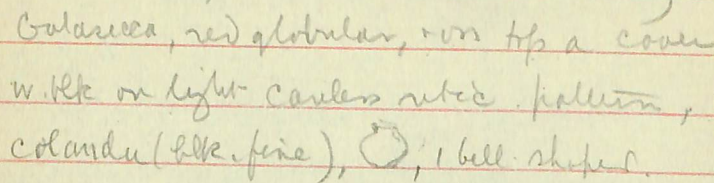 Golasecca, red globular, on top a cover
w. blk on light careless retic. pattern,
colander (blk. fine), , 1 bell-shaped.